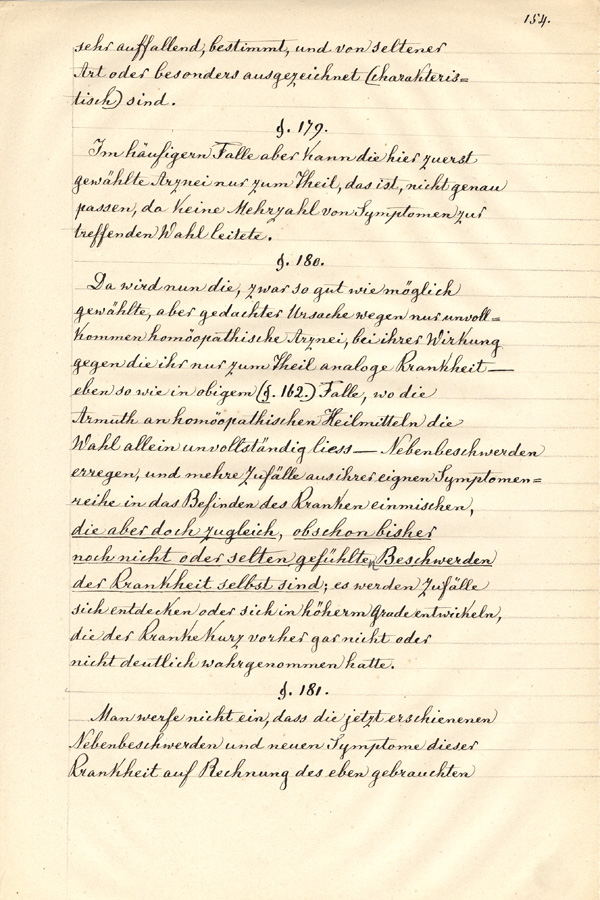 154.
sehr auffallend, bestimmt, und von seltener
Art oder besonders ausgezeichnet (charakteris=
tisch) sind.
§. 179.
Im häufigern Falle aber kann die hier zuerst
gewählte Arznei nur zum Theil, das ist, nicht genau
passen, da keine Mehrzahl von Symptomen zur
treffenden Wahl leitete.
§. 180.
Da wird nun die, zwar so gut wie möglich
gewählte, aber gedachter Ursache wegen nur unvoll=
kommen homöopathische Arznei, bei ihrer Wirkung
gegen die ihr nur zum Theil analoge Krankheit —
eben so wie in obigem (§. 162.) Falle, wo die
Armuth an homöopathischen Heilmitteln die
Wahl allein unvollständig liess — Nebenbeschwerden
erregen, und mehre Zufälle aus ihrer eignen Symptomen=
reihe in das Befinden des Kranken einmischen,
die aber doch zugleich, obschon bisher
noch nicht oder selten gefühlte, Beschwerden
der Krankheit selbst sind; es werden Zufälle
sich entdecken oder sich in höherm Grade entwickeln,
die der Kranke kurz vorher gar nicht oder
nicht deutlich wahrgenommen hatte.
§. 181.
Man werfe nicht ein, dass die jetzt erschienenen
Nebenbeschwerden und neuen Symptome dieser
Krankheit auf Rechnung des eben gebrauchten